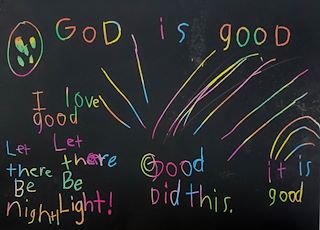 GOD is good
I love
good
Let
there
Be
night
Let
there
Be
Light!
Good
Did this.
it is
good